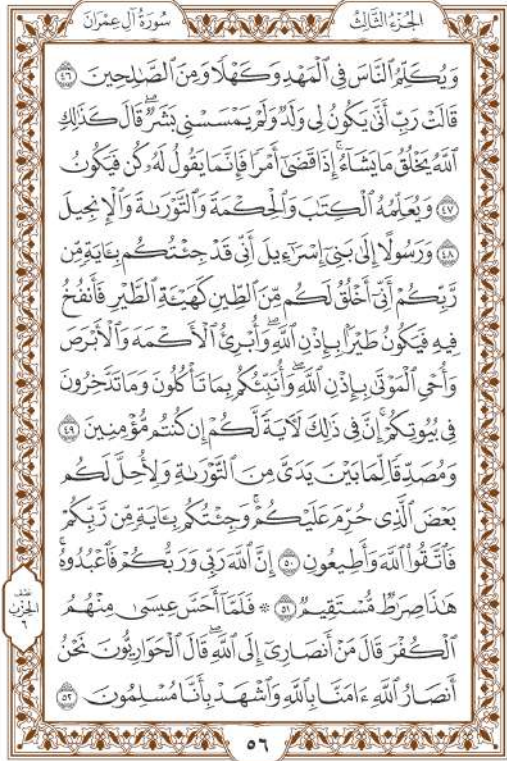 سُورَةُ آلِ عِمْرَانَ
الجُزْءُ الثَّالِثُ
وَيُكَلِّمُ ٱلنَّاسَ فِي ٱلْمَهْدِ وَكَهْلًا وَمِنَ ٱلصَّٰلِحِينَ ٤٦
قَالَتْ رَبِّ أَنَّىٰ يَكُونُ لِي وَلَدٌ وَلَمْ يَمْسَسْنِي بَشَرٌۖ قَالَ كَذَٰلِكِ
ٱللَّهُ يَخْلُقُ مَا يَشَآءُۚ إِذَا قَضَىٰٓ أَمْرًا فَإِنَّمَا يَقُولُ لَهُۥ كُن فَيَكُونُ
٤٧ وَيُعَلِّمُهُ ٱلْكِتَٰبَ وَٱلْحِكْمَةَ وَٱلتَّوْرَىٰةَ وَٱلْإِنجِيلَ
٤٨ وَرَسُولًا إِلَىٰ بَنِيٓ إِسْرَٰٓءِيلَ أَنِّي قَدْ جِئْتُكُم بِـَٔايَةٍ مِّن
رَّبِّكُمْ أَنِّيٓ أَخْلُقُ لَكُم مِّنَ ٱلطِّينِ كَهَيْـَٔةِ ٱلطَّيْرِ فَأَنفُخُ
فِيهِ فَيَكُونُ طَيْرًۢا بِإِذْنِ ٱللَّهِۖ وَأُبْرِئُ ٱلْأَكْمَهَ وَٱلْأَبْرَصَ
وَأُحْيِ ٱلْمَوْتَىٰ بِإِذْنِ ٱللَّهِۖ وَأُنَبِّئُكُم بِمَا تَأْكُلُونَ وَمَا تَدَّخِرُونَ
فِي بُيُوتِكُمْۚ إِنَّ فِي ذَٰلِكَ لَـَٔايَةً لَّكُمْ إِن كُنتُم مُّؤْمِنِينَ ٤٩
وَمُصَدِّقًا لِّمَا بَيْنَ يَدَيَّ مِنَ ٱلتَّوْرَىٰةِ وَلِأُحِلَّ لَكُم
بَعْضَ ٱلَّذِي حُرِّمَ عَلَيْكُمْۚ وَجِئْتُكُم بِـَٔايَةٍ مِّن رَّبِّكُمْ
فَٱتَّقُوا۟ ٱللَّهَ وَأَطِيعُونِ ٥٠ إِنَّ ٱللَّهَ رَبِّي وَرَبُّكُمْ فَٱعْبُدُوهُۚ
هَٰذَا صِرَٰطٌ مُّسْتَقِيمٌ ٥١ ۞ فَلَمَّآ أَحَسَّ عِيسَىٰ مِنْهُمُ
ٱلْكُفْرَ قَالَ مَنْ أَنصَارِيٓ إِلَى ٱللَّهِۖ قَالَ ٱلْحَوَارِيُّونَ نَحْنُ
أَنصَارُ ٱللَّهِ ءَامَنَّا بِٱللَّهِ وَٱشْهَدْ بِأَنَّا مُسْلِمُونَ ٥٢
نصف
الحزب
٦
٥٦